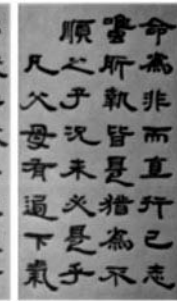 命為非而直行己志
雖所執皆是猶為不
順之子況未必是乎
凡父母有過下氣